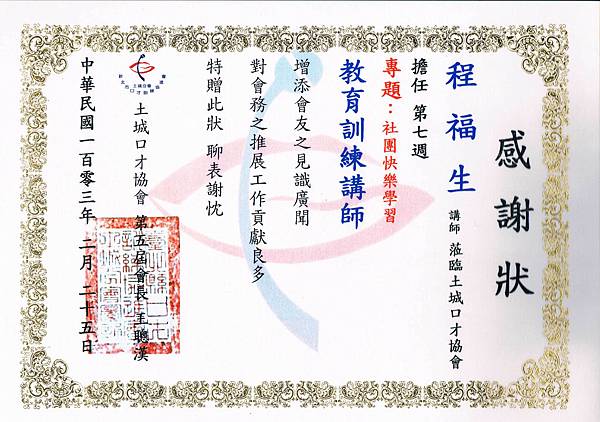 感謝狀
程福生 講師 蒞臨土城口才協會
擔任 第七週
專題：社團快樂學習
教育訓練講師
增添會友之見識廣聞
對會務之推展工作貢獻良多
特贈此狀 聊表謝忱
土城口才協會 第五屆會長 王聰漢
中華民國一百零三年 二月 二十五日